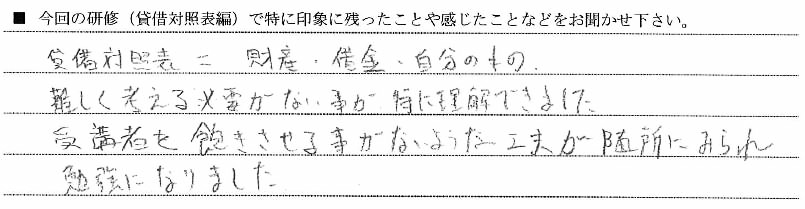 ■ 今回の研修（貸借対照表編）で特に印象に残ったことや感じたことなどをお聞かせ下さい。
貸借対照表 = 財産・借金・自分のもの.
難しく考える必要がない事が 特に理解できました
受講者を 飽きさせる事がないような 工夫が 随所にみられ
勉強になりました